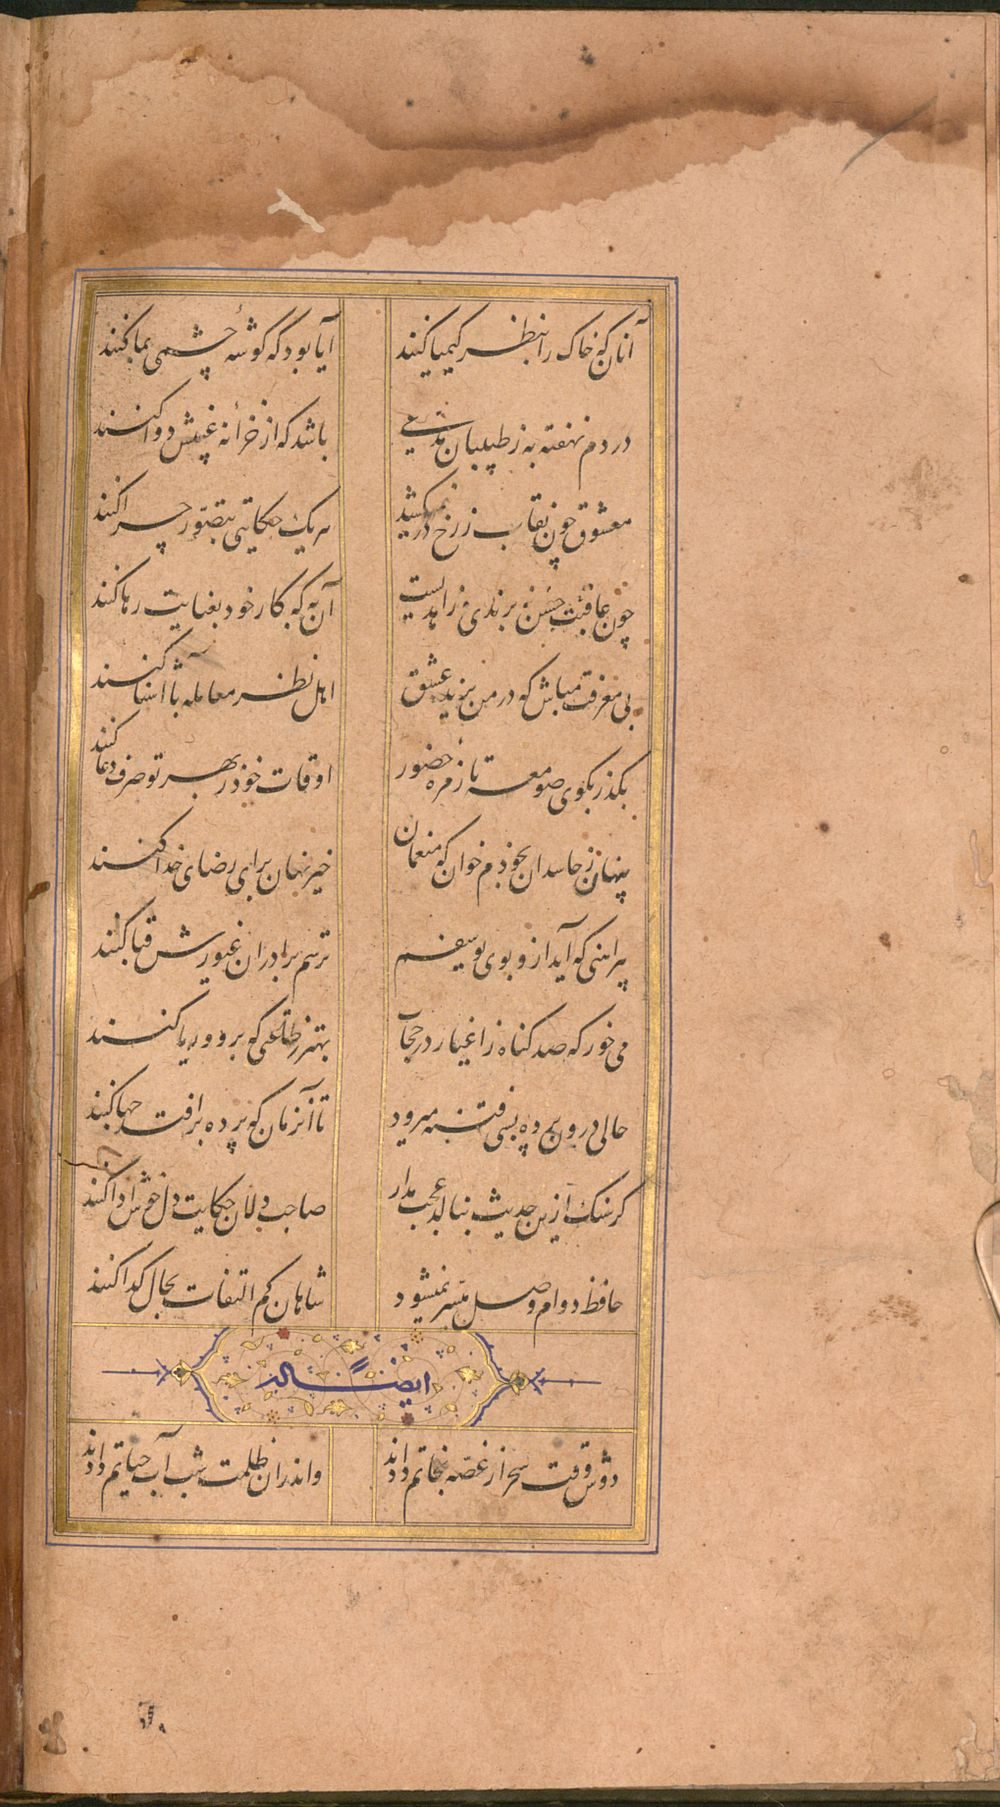 آنان که خاک را بنظر کیمیا کنند آیا بود که گوشهٔ چشمی بما کنند
دردم نهفته به ز طبیبان مدعی باشد که از خزانه غیبش دوا کنند
معشوق چون نقاب ز رخ بر نمیکشد هر یک حکایتی بتصور چرا کنند
چون عاقبت حسن برندی و زاهدیست آن به که کار خود بعنایت رها کنند
بی معرفت مباش که در من یزید عشق اهل نظر معامله با آشنا کنند
بگذر بکوی صومعه تا زمره حضور اوقات خود ز بهر تو صرف دعا کنند
پنهان ز حاسدان بخودم خوان که منعمان خیر نهان برای رضای خدا کنند
پیراهنی که آید ازو بوی یوسفم ترسم برادران غیورش قبا کنند
می خور که صد گناه ز اغیار در حجاب بهتر ز طاعتی که بروی و ریا کنند
حالی درون پرده بسی فتنه میرود تا آنزمان که پرده برافتد چها کنند
گر سنگ ازین حدیث بنالد عجب مدار صاحب دلان حکایت دل خوش ادا کنند
حافظ دوام وصل میسر نمیشود شاهان کم التفات بحال گدا کنند
ایضاً له
دوش وقت سحر از غصه نجاتم دادند واندران ظلمت شب آب حیاتم دادند